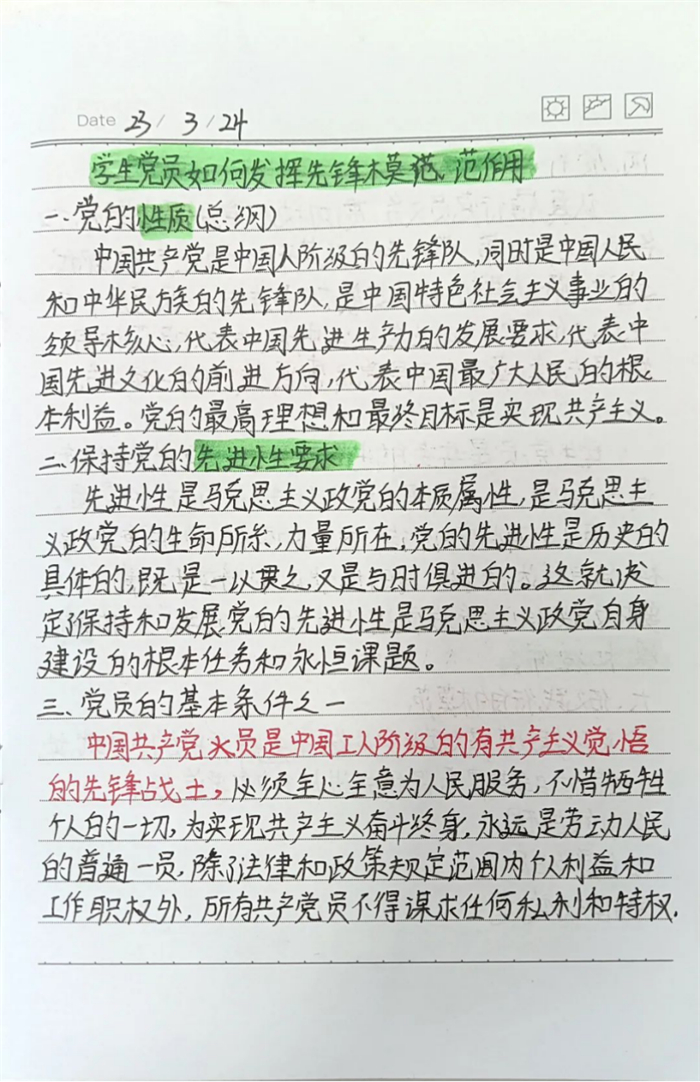 Date 23 / 3 / 24
学生党员如何发挥先锋模范范作用
一、党的性质(总纲)
中国共产党是中国人阶级的先锋队,同时是中国人民
和中华民族的先锋队,是中国特色社会主义事业的
领导核心,代表中国先进生产力的发展要求,代表中
国先进文化的前进方向,代表中国最广大人民的根
本利益。党的最高理想和最终目标是实现共产主义。
二、保持党的先进性要求
先进性是马克思主义政党的本质属性,是马克思主
义政党的生命所系,力量所在,党的先进性是历史的
具体的,既是一以贯之,又是与时俱进的。这就决
定了保持和发展党的先进性是马克思主义政党自身
建设的根本任务和永恒课题。
三、党员的基本条件之一
中国共产党员是中国工人阶级的有共产主义觉悟
的先锋战士,必须全心全意为人民服务,不惜牺牲
个人的一切,为实现共产主义奋斗终身,永远是劳动人民
的普通一员,除了法律和政策规定范围内个人利益和
工作职权外,所有共产党员不得谋求任何私利和特权.